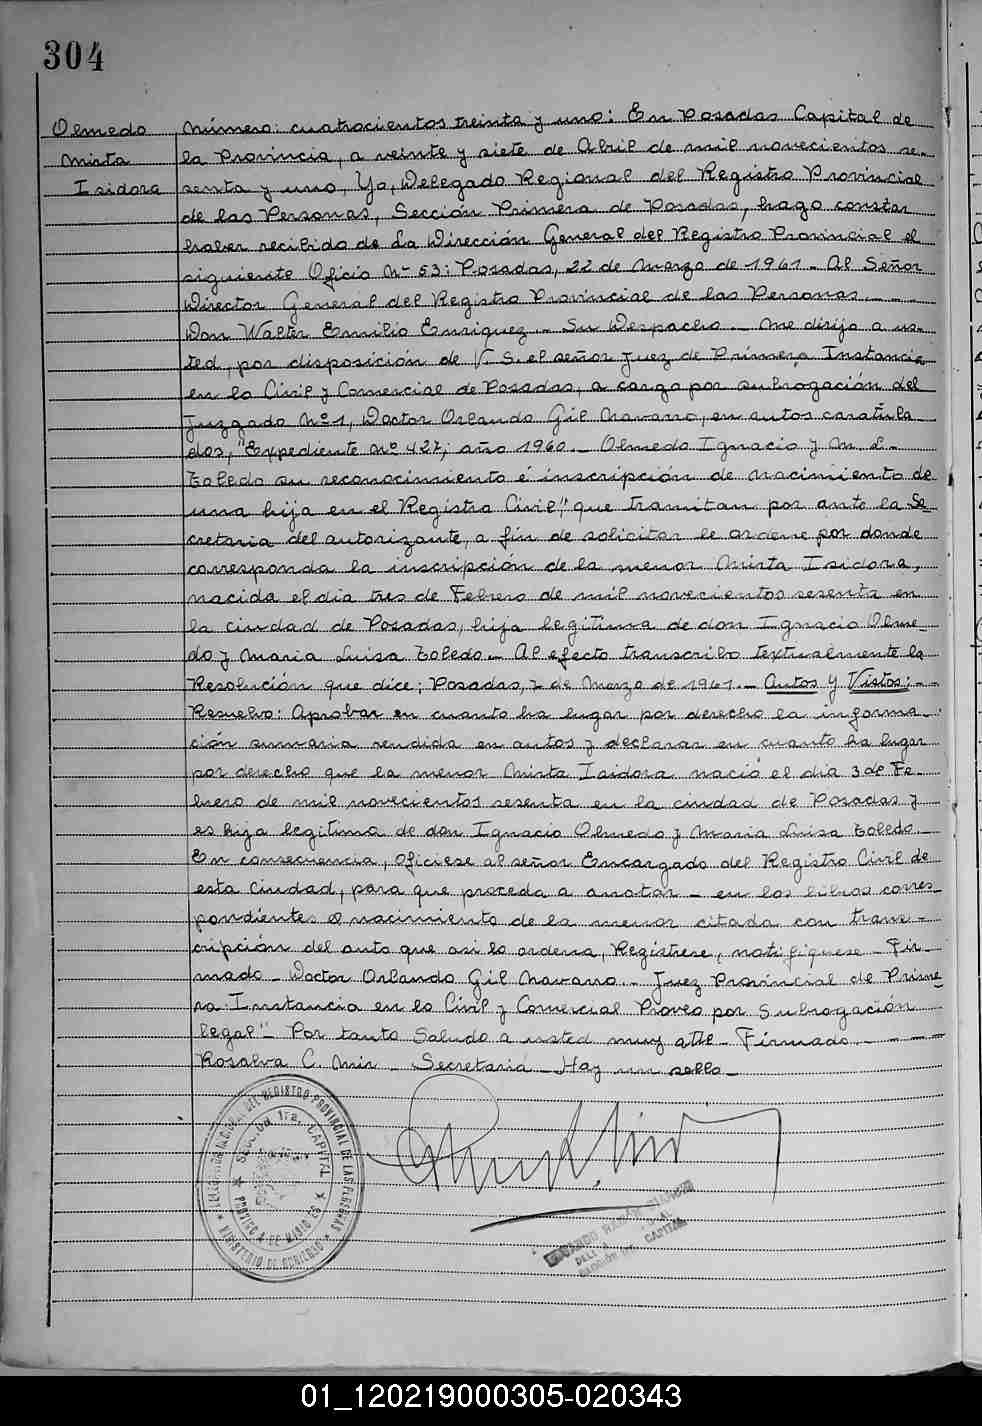 304
Olmedo
Mirta
Isidora
Número: cuatrocientos treinta y uno: En Posadas Capital de
la Provincia, a veinte y siete de Abril de mil novecientos se-
senta y uno, Yo, Delegado Regional del Registro Provincial
de las Personas, Sección Primera de Posadas, hago constar
haber recibido de La Dirección General del Registro Provincial el
siguiente Oficio Nº 53: Posadas, 22 de Marzo de 1961 - Al Señor
Director General del Registro Provincial de las Personas. - - -
Don Walter Emilio Enriquez - Su Despacho - Me dirijo a us-
ted, por disposición de V. S. el señor Juez de Primera Instancia
en lo Civil y Comercial de Posadas, a cargo por subrogación del
Juzgado Nº 1, Doctor Orlando Gil Navarro, en autos caratula
dos, "Expediente Nº 427, año 1960 - Olmedo Ignacio y M. L.
Toledo su reconocimiento é inscripción de nacimiento de
una hija en el Registro Civil", que tramitan por ante la Se-
cretaria del autorizante, a fin de solicitar le ordene por donde
corresponda la inscripción de la menor Mirta Isidora,
nacida el dia tres de Febrero de mil novecientos sesenta en
la ciudad de Posadas, hija legitima de don Ignacio Olme-
do y Maria Luisa Toledo - Al efecto transcribo textualmente la
Resolución que dice; Posadas, 7 de Marzo de 1961 - Autos y Vistos: - -
Resuelvo: Aprobar en cuanto ha lugar por derecho la informa-
ción sumaria rendida en autos y declarar en cuanto ha lugar
por derecho que la menor Mirta Isidora nació el dia 3 de Fe-
brero de mil novecientos sesenta en la ciudad de Posadas y
es hija legitima de don Ignacio Olmedo y Maria Luisa Toledo. -
En consecuencia, Ofíciese al señor Encargado del Registro Civil de
esta Ciudad, para que proceda a anotar - en los libros corres-
pondientes el nacimiento de la menor citada con trans-
cripción del auto que asi lo ordena, Registrese, notifiquese - Fir-
mado - Doctor Orlando Gil Navarro - Juez Provincial de Prime-
ra Instancia en lo Civil y Comercial Proveo por Subrogación
legal" - Por tanto Saludo a usted muy atte - Firmado - - - -
Rosalva C. Mir - Secretaria - Hay un sello -
DEL REGISTRO PROVINCIAL DE LAS PERSONAS
MINISTERIO DE GOBIERNO
1ra. CAPITAL
CAPITAL
01_120219000305-020343